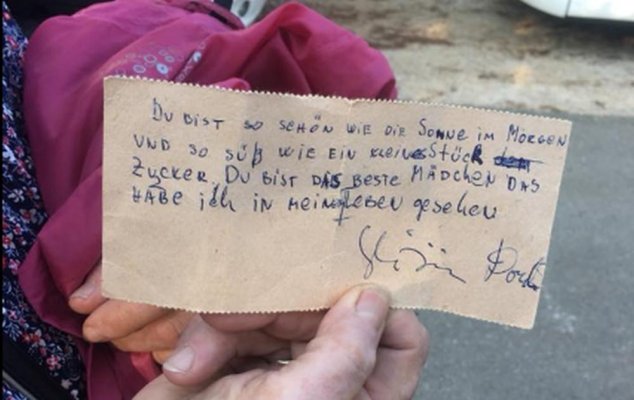 DU BIST SO SCHÖN WIE DIE SONNE IM MORGEN
UND SO SÜß WIE EIN KLEINES STÜCK
ZUCKER. DU BIST DAS BESTE MÄDCHEN DAS
HABE ich IN MEIN LEBEN gesehen